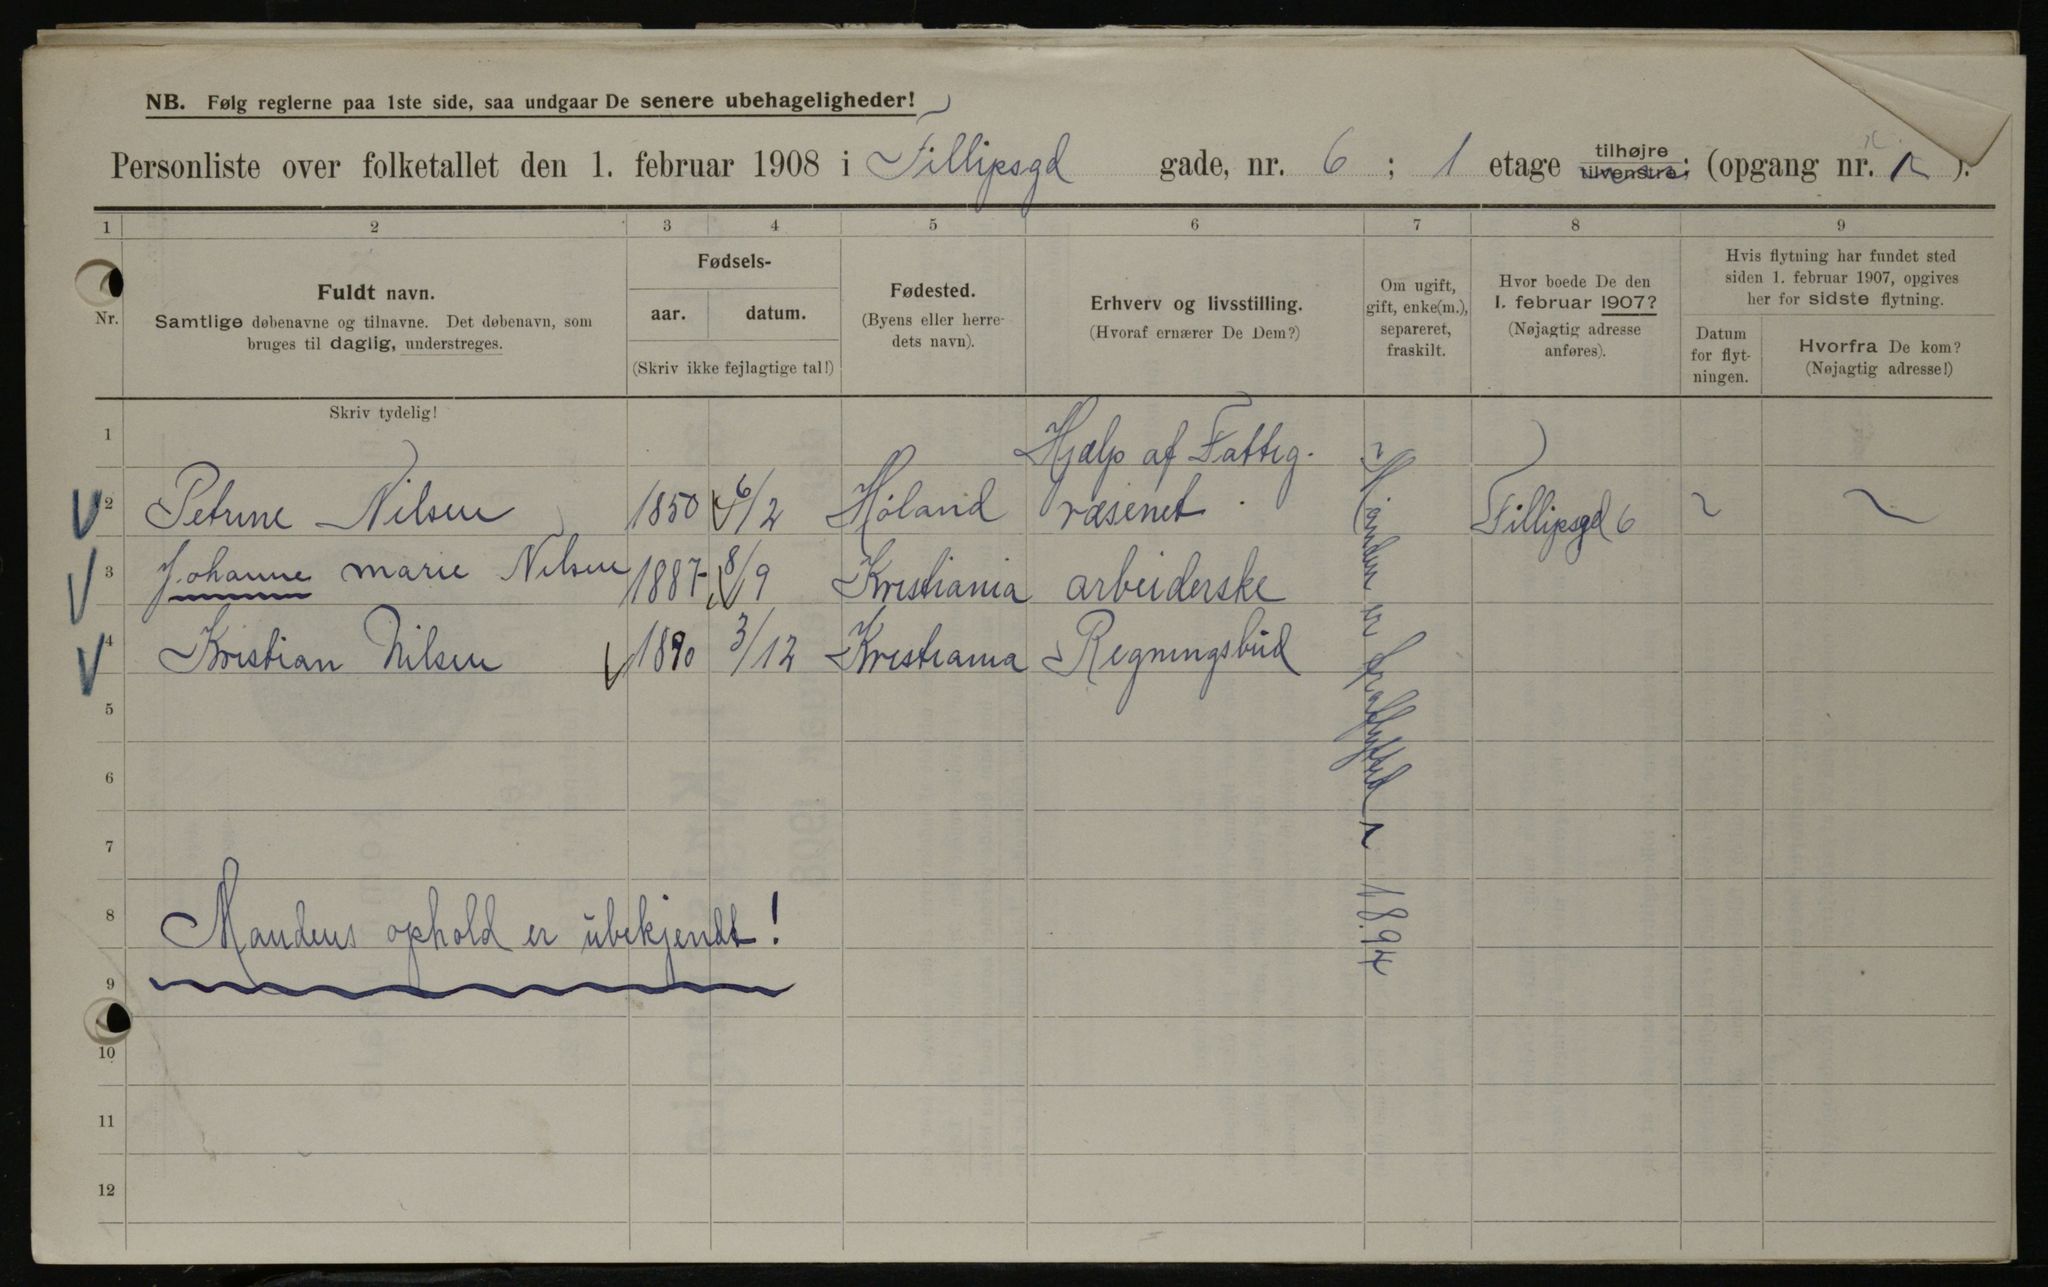 NB. Følg reglerne paa 1ste side, saa undgaar De senere ubehageligheder!
Personliste over folketallet den 1. februar 1908 i Fillipsgd gade, nr. 6 ; 1 etage tilhøjre tilvenstre; (opgang nr. ).
1 2 3 4 5 6 7 8 9
Nr.
Fuldt navn.
Samtlige døbenavne og tilnavne. Det døbenavn, som
bruges til daglig, understreges.
Skriv tydelig!
Fødsels-
aar. datum.
(Skriv ikke fejlagtige tal!)
Fødested.
(Byens eller herre-
dets navn).
Erhverv og livsstilling.
(Hvoraf ernærer De Dem?)
Om ugift,
gift, enke(m.),
separeret,
fraskilt.
Hvor boede De den
1. februar 1907?
(Nøjagtig adresse
anføres).
Hvis flytning har fundet sted
siden 1. februar 1907, opgives
her for sidste flytning.
Datum
for flyt-
ningen.
Hvorfra De kom?
(Nøjagtig adresse!)
1 Hjælp af Fattig-
2 Petrine Nilsen 1850 6/2 Høland væsenet. Fillipsgd 6
3 Johanne marie Nilsen 1887 8/9 Kristiania arbeiderske
4 Kristian Nilsen 1890 3/12 Kristiania Regningsbud
Manden er fraflyttet 1894
5
6
7
8 Mandens ophold er ubekjendt!
9
10
11
12